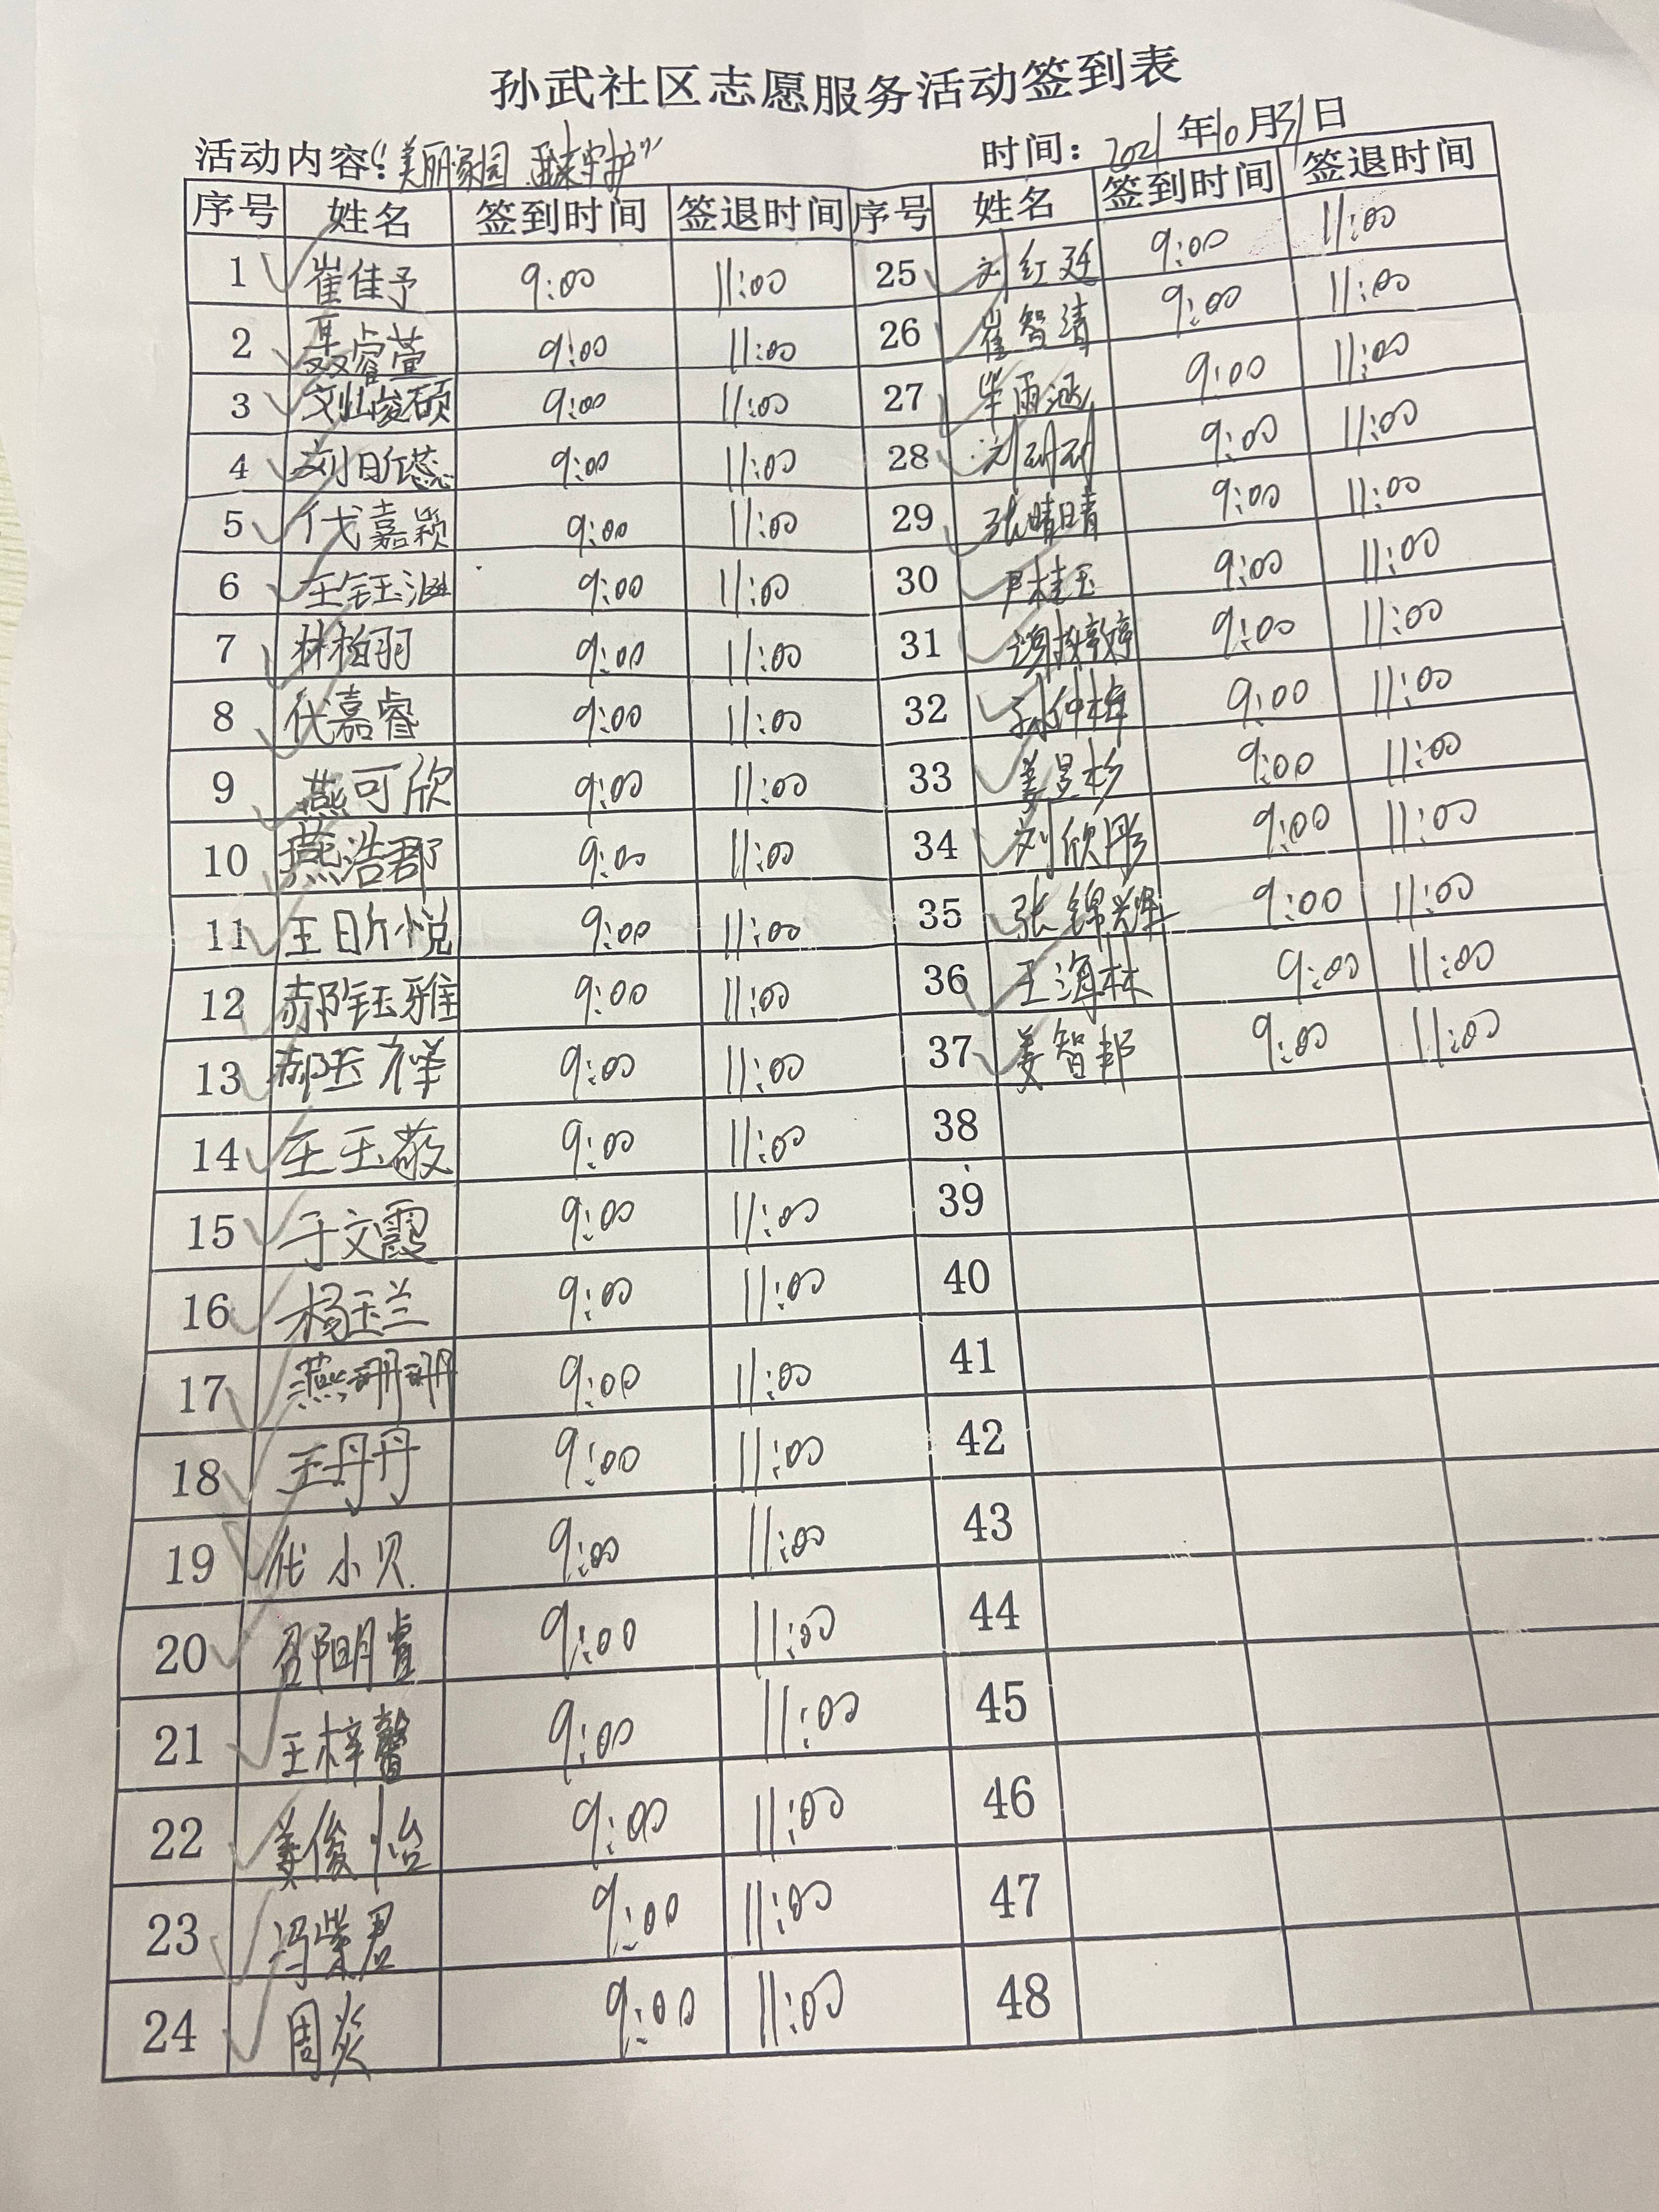 孙武社区志愿服务活动签到表
活动内容：“美丽家园 我来守护” 时间：2021年10月31日
序号 姓名 签到时间 签退时间 序号 姓名 签到时间 签退时间
1 崔佳予 9:00 11:00 25 刘红廷 9:00 11:00
2 聂睿萱 9:00 11:00 26 崔智清 9:00 11:00
3 刘峻硕 9:00 11:00 27 毕雨涵 9:00 11:00
4 刘昕蕊 9:00 11:00 28 9:00 11:00
5 代嘉颖 9:00 11:00 29 张晴晴 9:00 11:00
6 王钰涵 9:00 11:00 30 尹桂玉 9:00 11:00
7 林柏羽 9:00 11:00 31 9:00 11:00
8 代嘉睿 9:00 11:00 32 孙仲梓 9:00 11:00
9 燕可欣 9:00 11:00 33 姜昱杉 9:00 11:00
10 燕浩郡 9:00 11:00 34 刘欣彤 9:00 11:00
11 王昕悦 9:00 11:00 35 张锦辉 9:00 11:00
12 郝钰雅 9:00 11:00 36 王海林 9:00 11:00
13 郝玉祥 9:00 11:00 37 姜智邦 9:00 11:00
14 王玉敬 9:00 11:00 38
15 于文霞 9:00 11:00 39
16 杨玉兰 9:00 11:00 40
17 燕珊珊 9:00 11:00 41
18 王丹丹 9:00 11:00 42
19 代小贝 9:00 11:00 43
20 邵明睿 9:00 11:00 44
21 王梓馨 9:00 11:00 45
22 姜俊怡 9:00 11:00 46
23 冯紫君 9:00 11:00 47
24 周炎 9:00 11:00 48